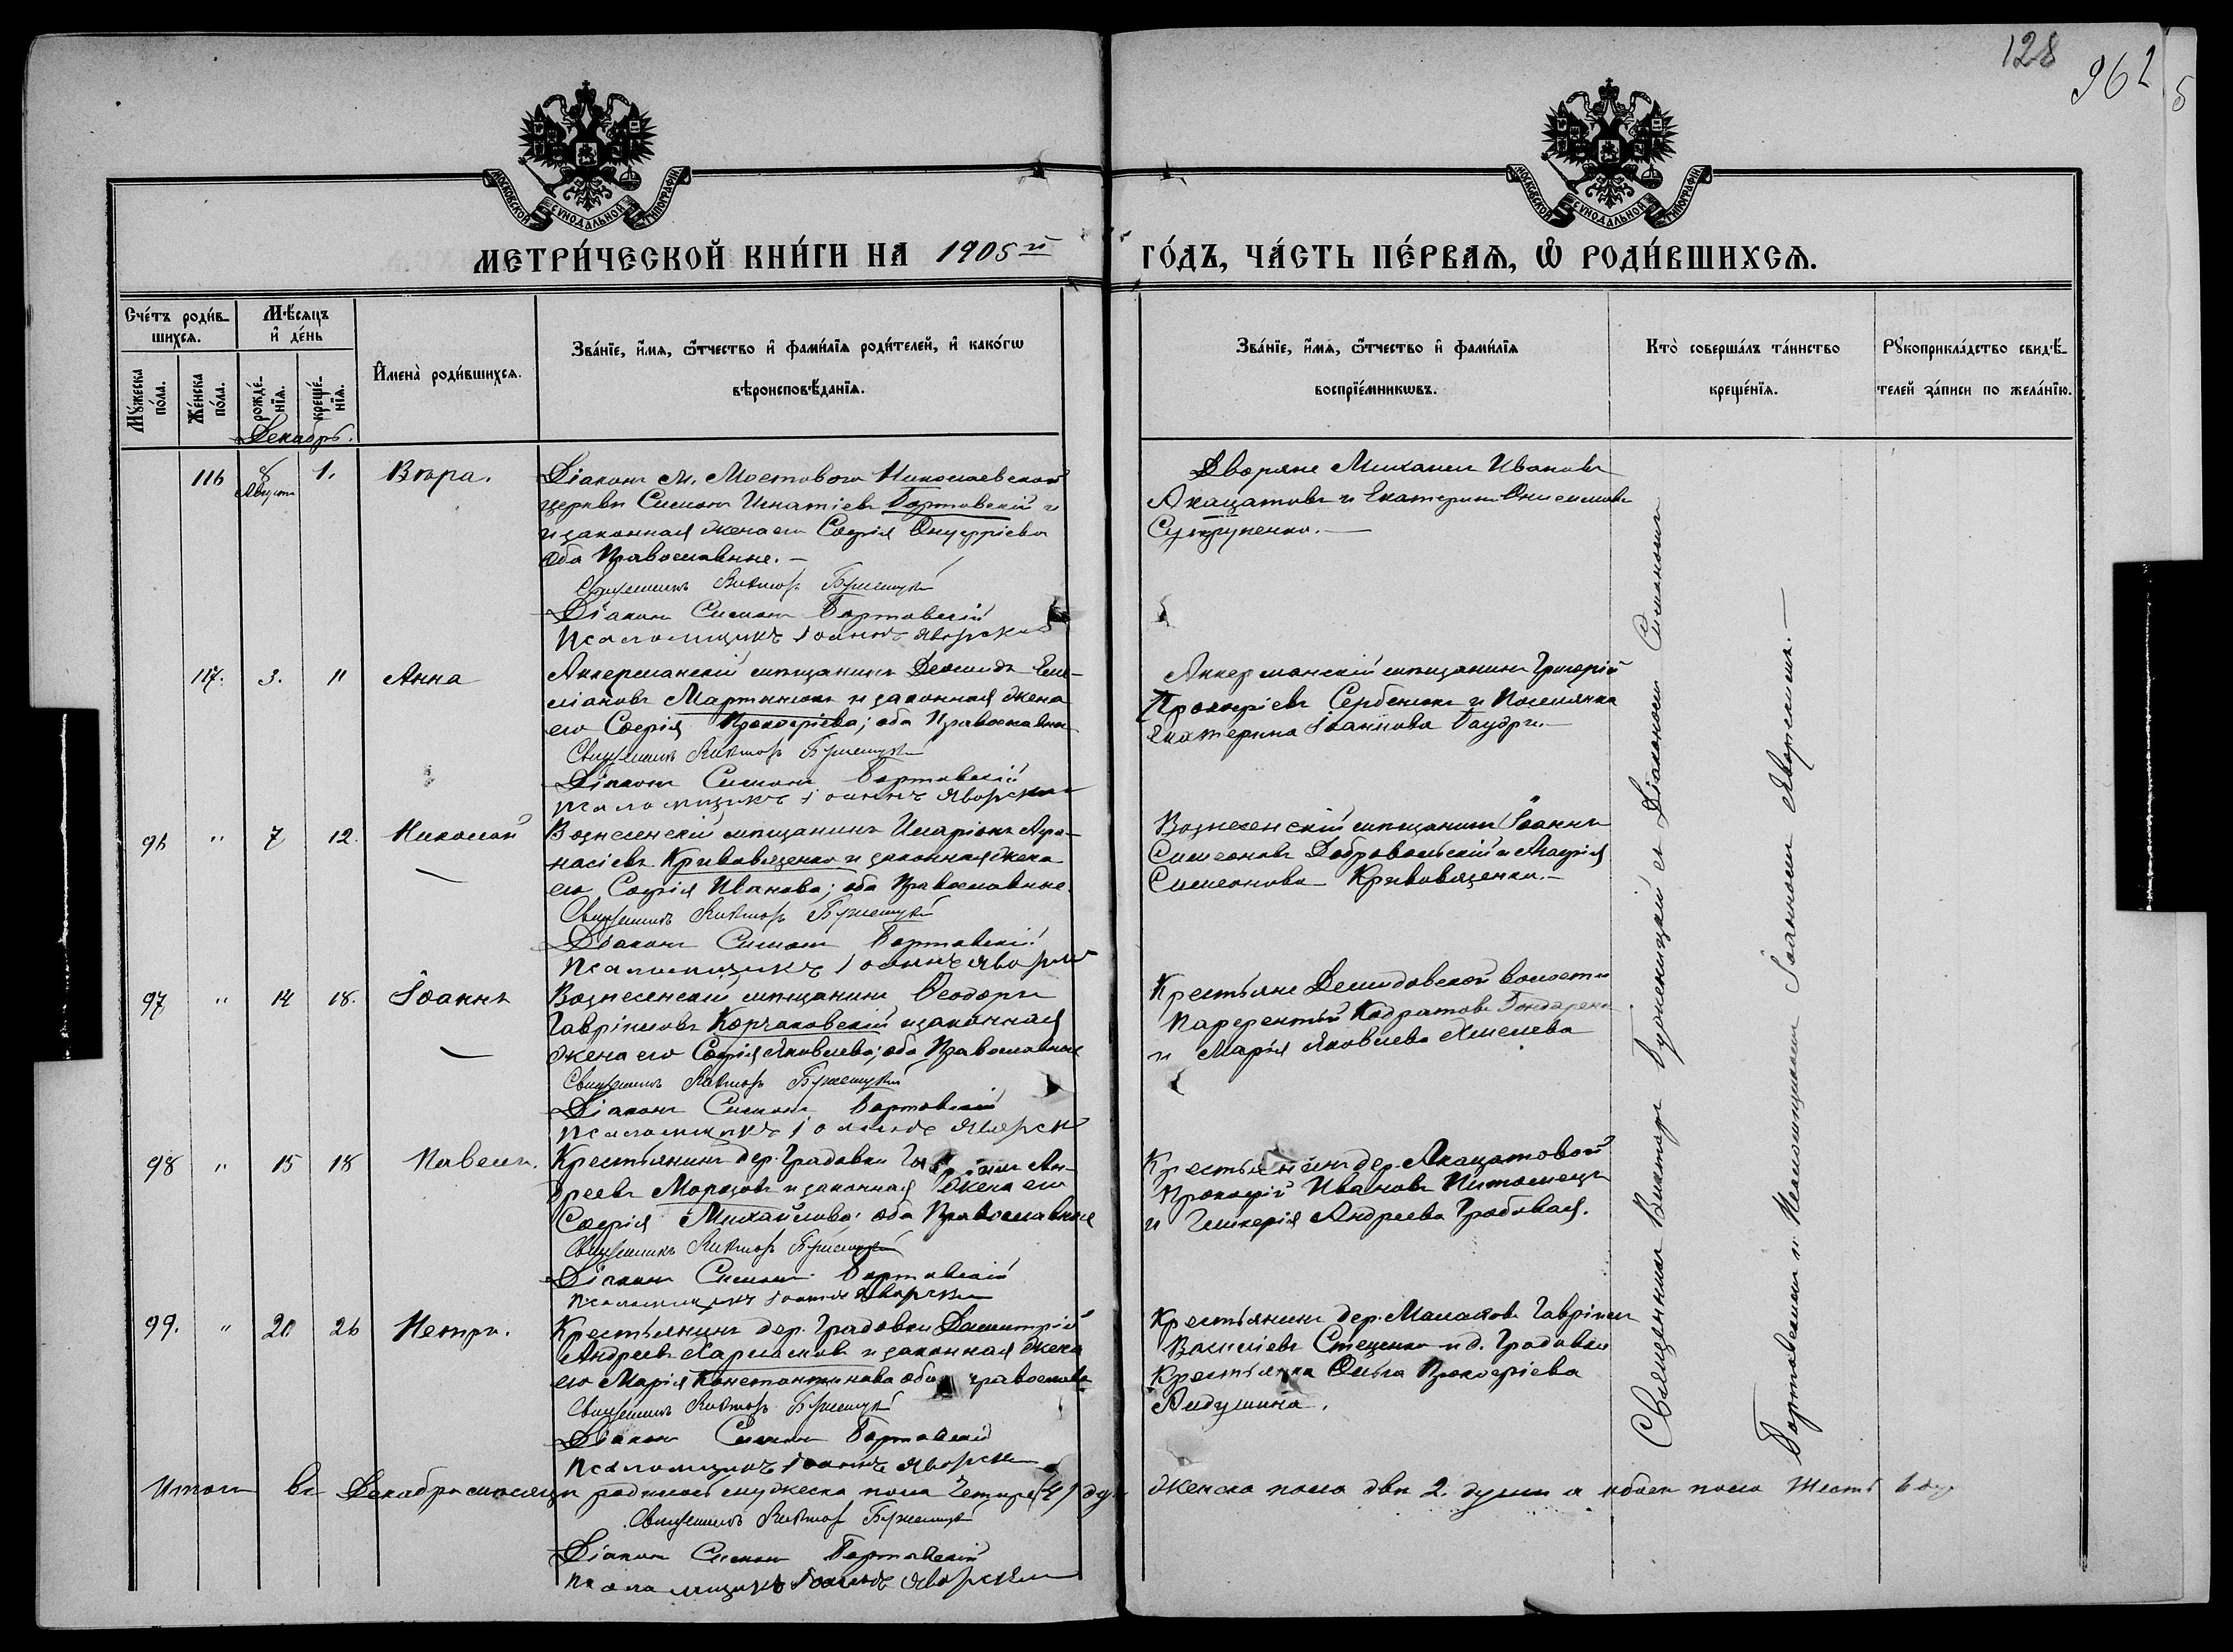 128
962
МОСКОВСКОЙ СѴНОДАЛЬНОЙ ТИПОГРАФІИ
МОСКОВСКОЙ СѴНОДАЛЬНОЙ ТИПОГРАФІИ
МЕТРИ́ЧЕСКОЙ КНИ́ГИ НА 1905й
ГО́ДЪ, ЧА́СТЬ ПЕ́РВАѦ, Ѽ РОДИ́ВШИХСѦ.
Сче́тъ роди́в-
шихсѧ.
Мѣ́сѧцъ
и҆ де́нь
Мꙋ́жеска
по́ла.
Же́нска
по́ла.
рожде́-
нїѧ.
креще́-
нїѧ.
И҆мена̀ роди́вшихсѧ.
Зва́нїе, и҆́мѧ, ѻ҆́тчество и҆ фами́лїѧ роди́телей, и҆ како́гѡ
вѣроисповѣ́данїѧ.
Зва́нїе, и҆́мѧ, ѻ҆́тчество и҆ фами́лїѧ
воспрїе́мникѡвъ.
Кто̀ соверша́лъ та́инство
креще́нїѧ.
Рꙋкоприкла́дство свидѣ́-
телей за́писи по жела́нїю.
Декабрь.
116 8 Августа 1. Вѣра.
Діаконъ м. Мостового Николаевской
церкви Симонъ Игнатіевъ Бортовскій и
и законная жена его Софія Онуфріева
оба Православные.
Священникъ Викторъ
Діаконъ Симонъ Бортовскій
Псаломщикъ Іоаннъ Яворскій
Дворяне Михаилъ Ивановъ
Акацатовъ и Екатерина Онисимова
117. 3. 11 Анна
Аккерманскій мѣщанинъ Демидъ Еме-
ліановъ Мартынюкъ и законная жена
его Софія Прокофіева; оба Православные
Священникъ Викторъ
Діаконъ Симонъ Бортовскій
Псаломщикъ Іоаннъ Яворскій
Аккерманскій мѣщанинъ Григорій
Прокофіевъ Сербенюкъ и Поселянка
Екатерина Іоаннова
96 " 7 12. Николай
Вознесенскій мѣщанинъ Иларіонъ Афа-
насіевъ Кривовязенко и законная жена
его Софія Иванова; оба Православные.
Священникъ Викторъ
Діаконъ Симонъ Бортовскій
Псаломщикъ Іоаннъ Яворскій
Вознесенскій мѣщанинъ Іоаннъ
Симеоновъ Добровольскій и
Симеонова Кривовязенко.
97 " 14 18. Іоаннъ
Вознесенскій мѣщанинъ Ѳеодоръ
Гавріиловъ Корчаковскій и законная
жена его Софія Яковлева; оба Православные
Священникъ Викторъ
Діаконъ Симонъ Бортовскій
Псаломщикъ Іоаннъ Яворскій
Крестьяне Демидовской волости
Парфентій Кодратовъ Гондаренко
и Марія Яковлева
98 " 15 18 Павелъ.
Крестьянинъ дер. Градовки Гавріилъ Ан-
дреевъ Морозовъ и законная жена его
Софія Михайлова; оба Православные
Священникъ Викторъ
Діаконъ Симонъ Бортовскій
Псаломщикъ Іоаннъ Яворскій
Крестьянинъ дер. Акацатовой
Прокофій Ивановъ
и Гликерія Андреева Грабовая.
99. " 20 26 Петръ.
Крестьянинъ дер. Градовки Димитрій
Андреевъ Харламовъ и законная жена
его Марія Константинова оба православные
Священникъ Викторъ
Діаконъ Симонъ Бортовскій
Псаломщикъ Іоаннъ Яворскій
Крестьянинъ дер. Малаховой Гавріилъ
Василіевъ Стеценко и д. Градовки
Крестьянка Ольга Прокофіева
Священникъ Викторъ съ Діакономъ Симономъ
Бортовскимъ и Псаломщикомъ Іоанномъ Яворскимъ.
Итого въ Декабрѣ мѣсяцѣ родилось мужеска пола Четыре (4) ду женска пола двѣ 2. души а обоего пола шесть 6 ду
Священникъ Викторъ
Діаконъ Симонъ Бортовскій
Псаломщикъ Іоаннъ Яворскій